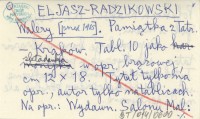 ELJASZ-RADZIKOWSKI
Walery [przed 1900]. Pamiątka z Tatr.
– Kraków. Tabl. 10 jako
składanka w opr. brązowej,
cm 12 x 18. Tytuł tylko na
opr., autor tylko na tablicach.
Na opr.: Wydawn. Salonu Mal.